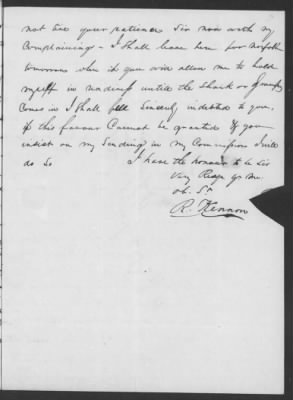 not tire your patience Sir now with my
Complainings - I shall leave here for Norfolk
tomorrow when if you will allow me to hold
myself in readiness until the Shark or
Comes in I Shall feel Sincerely indebted to you,
if this favour Cannot be granted & you
insist on my Sending in my Commission I will
do So I have the honour to be Sir
Very Resp yr
ob. St
R. Kennon